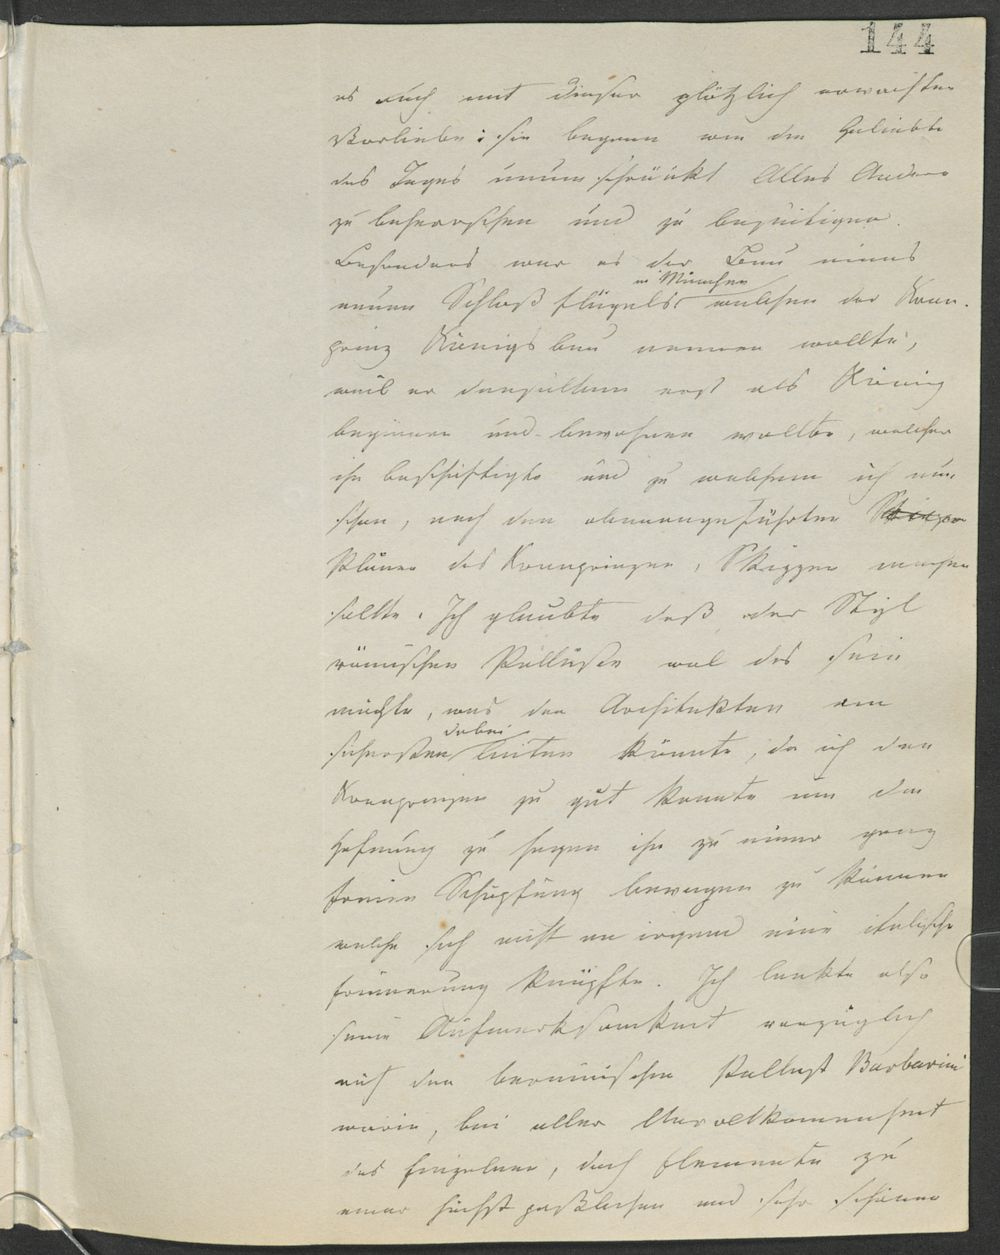 144
es auch mit dieser plötzlich erwachten
Vorliebe: sie begann wie die Geliebte
des Tages unumschränkt Alles Andere
zu beherrschen und zu beseitigen.
Besonders war es der Bau eines
in München
neuen Schloß flügels welchen der Kron-
prinz Königsbau nennen wollte,
weil er denselben erst als König
beginnen und bewohnen wollte, welcher
ihn beschäftigte und zu welchem ich nun
schon, nach den obenangeführten
Plänen des Kronprinzen, Skizzen machen
sollte. Ich glaubte daß der Styl
römischen Palläste wol das sein
möchte, was den Architekten am
dabei
sichersten leiten könnte, da ich den
Kronprinzen zu gut kannte um die
Hofnung zu hegen ihn zu einer ganz
freien Schöpfung bewegen zu können
welche sich nicht an irgend eine italische
Erinnerung knüpfte. Ich lenkte also
seine Aufmerksamkeit vorzüglich
auf den berninischen Pallast Barbarini
worin, bei aller Unvollkommenheit
des Einzelnen, doch Elemente zu
einer höchst paßlichen und sehr schönen